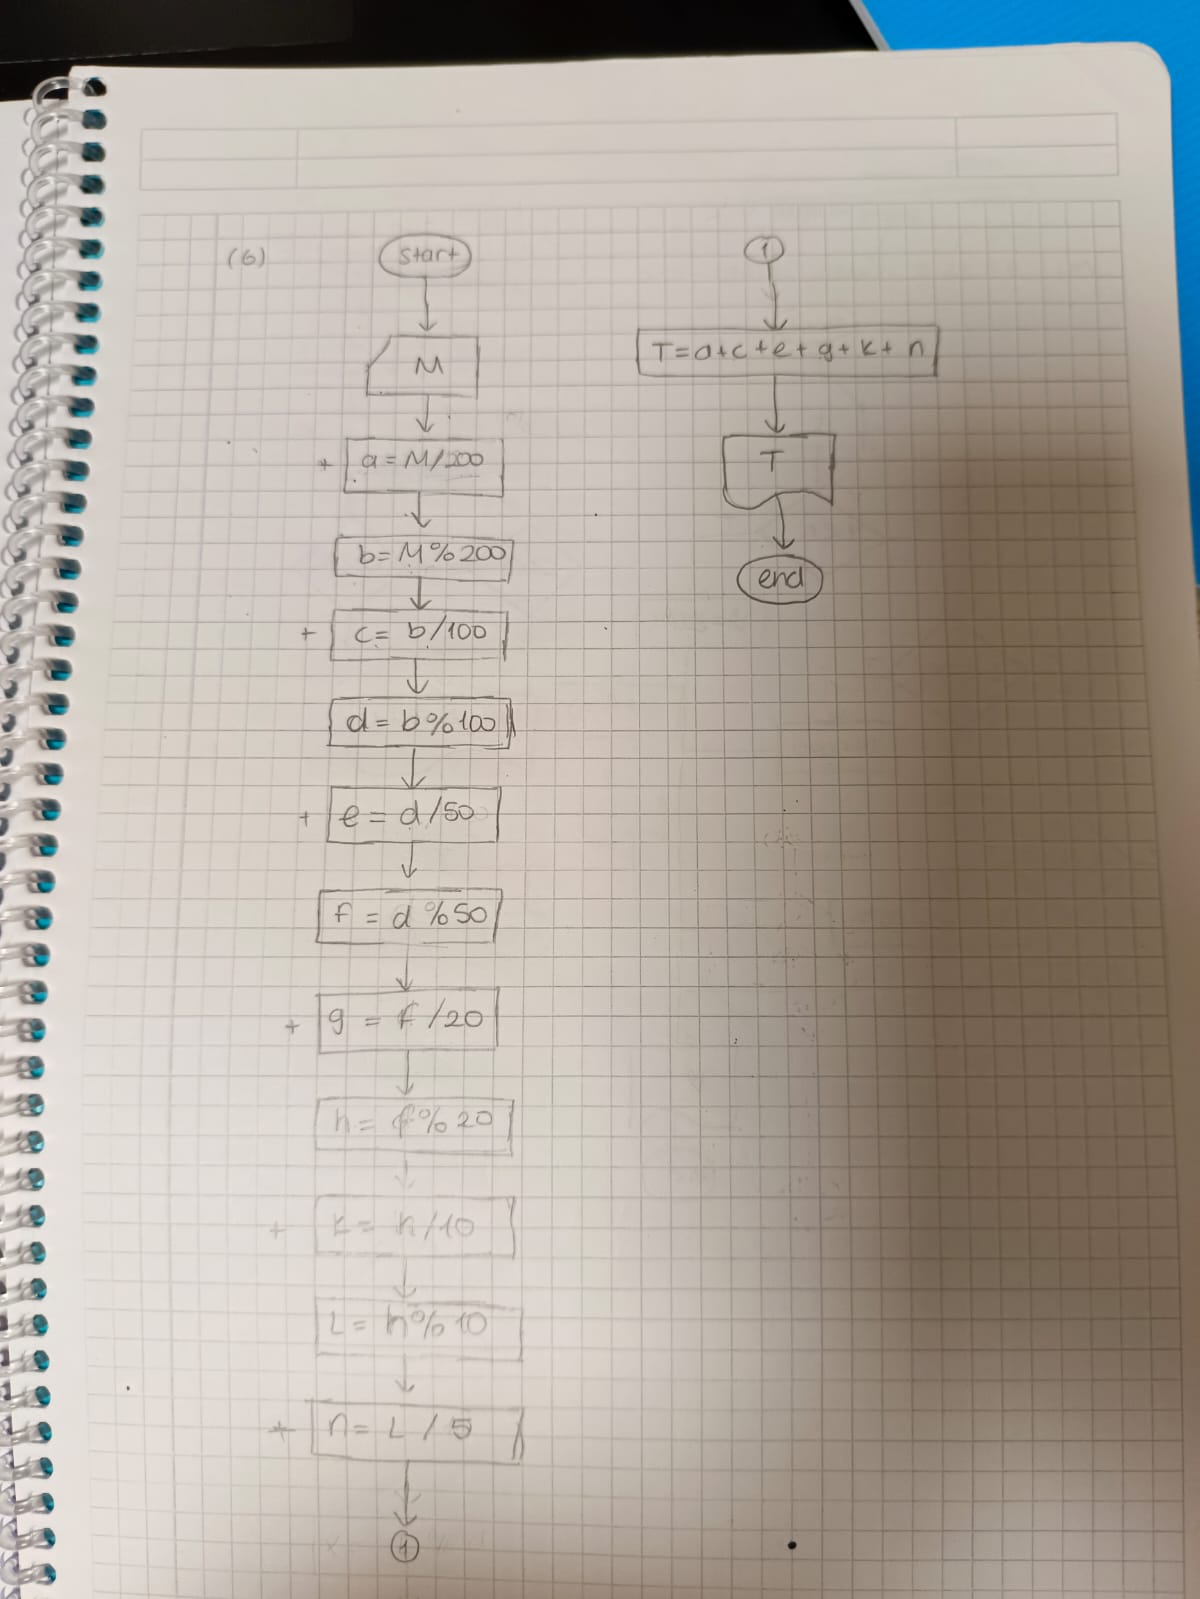 (6)
start
M
+ a = M/200
b = M%200
+ c = b/100
d = b%100
+ e = d/50
f = d %50
+ g = f/20
h = f%20
+ k = h/10
L = h%10
+ n = L / 5
1
1
T=a+c+e+g+k+n
T
end